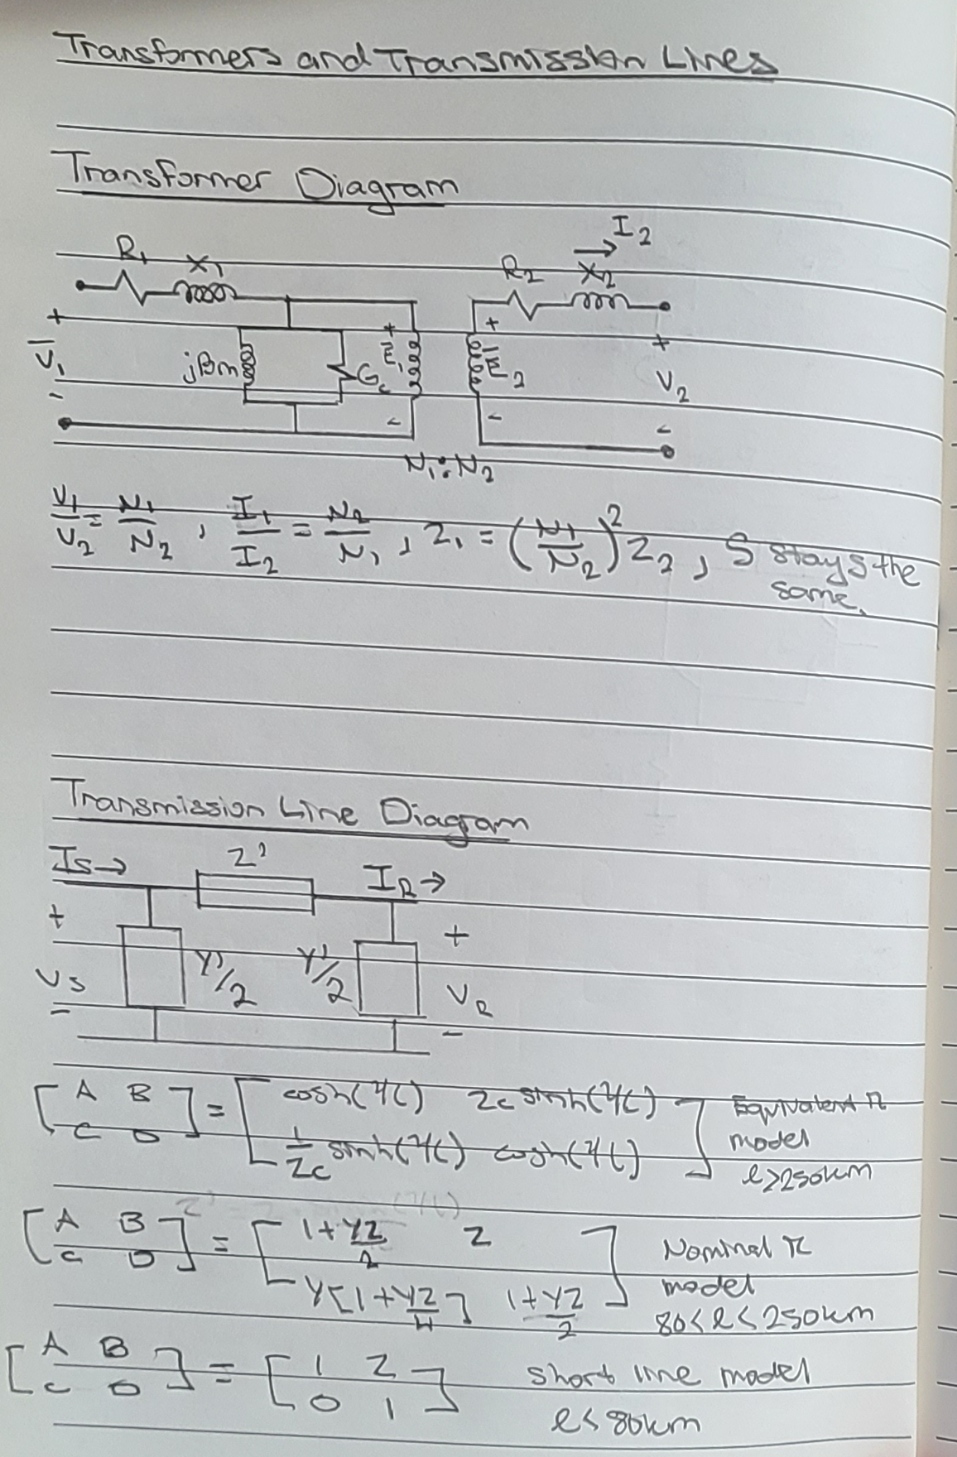 Transformers and Transmission Lines
Transformer Diagram
I2
R1 X1 R2 X2
+ + + +
V̄1 jBm Gc Ē1 Ē2 V2
- - - -
N1:N2
V1/V2 = N1/N2, I1/I2 = N2/N1, Z1 = (N1/N2)^2 Z2, S stays the
same.
Transmission Line Diagram
Is→ Z' IR→
+ +
Vs Y'/2 Y'/2 VR
- -
[A B C D] = [cosh(γl) Zc sinh(γl) 1/Zc sinh(γl) cosh(γl)] Equivalent π
model
l>250km
[A B C D] = [1+YZ/2 Z Y[1+YZ/4] 1+YZ/2] Nominal π
model
80<l<250km
[A B C D] = [1 Z 0 1] short line model
l<80km